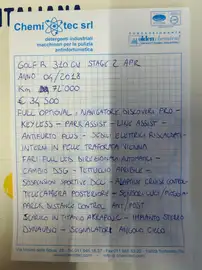 Chemitec srl
detergenti industriali
macchinari per la pulizia
antinfortunistica
GOLF R 310 CV STAGE 2 APR
ANNO 04/2018
Km 72'000
€ 34,500
FULL OPTIONAL: NAVIGATORE DISCOVER PRO -
KEYLESS - PARK ASSIST - LANE ASSIST -
ANTIFURTO PLUS - SEDILI ELETTRICI RISCALDATI -
INTERNI IN PELLE TRAFORATA VIENNA
FARI FULL LED DIREZIONALI AUTOMATICI -
CAMBIO DSG - TETTUCCIO APRIBILE -
SOSPENSIONI SPORTIVE DCC - ADAPTIVE CRUISE CONTROL
TELECAMERA POSTERIORE -
PARCK DISTANCE CONTROL ANT/POST
SCARICO IN TITANIO AKRAPOVIC - IMPIANTO STEREO
DYNAUDIO - SEGNALATORE ANGOLO CIECO